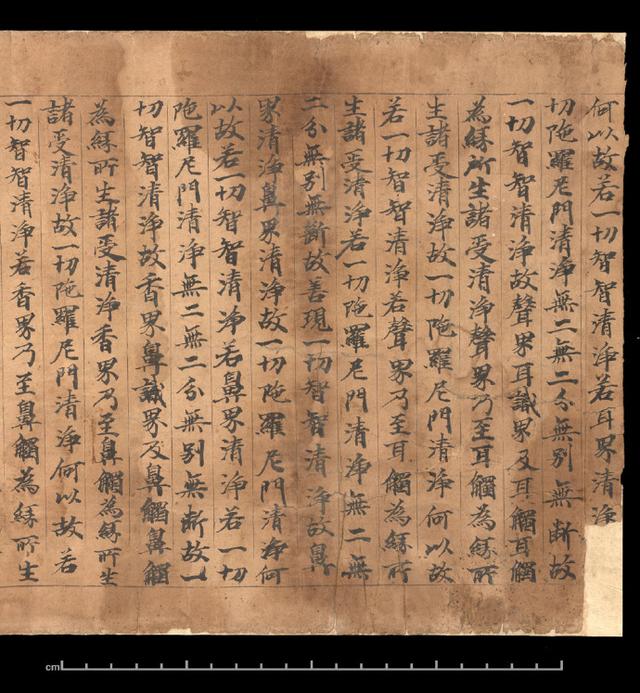 何以故若一切智智清淨若耳界清淨
切陁羅尼門清淨無二無二分無別無斷故
一切智智清淨故聲界耳識界及耳觸耳觸
為緣所生諸受清淨聲界乃至耳觸為緣所
生諸受清淨故一切陁羅尼門清淨何以故
若一切智智清淨若聲界乃至耳觸為緣所
生諸受清淨若一切陁羅尼門清淨無二無
二分無別無斷故善現一切智智清淨故鼻
界清淨鼻界清淨故一切陁羅尼門清淨何
以故若一切智智清淨若鼻界清淨若一切
陁羅尼門清淨無二無二分無別無斷故一
切智智清淨故香界鼻識界及鼻觸鼻觸
為緣所生諸受清淨香界乃至鼻觸為緣所生
諸受清淨故一切陁羅尼門清淨何以故若
一切智智清淨若香界乃至鼻觸為緣所生
cm